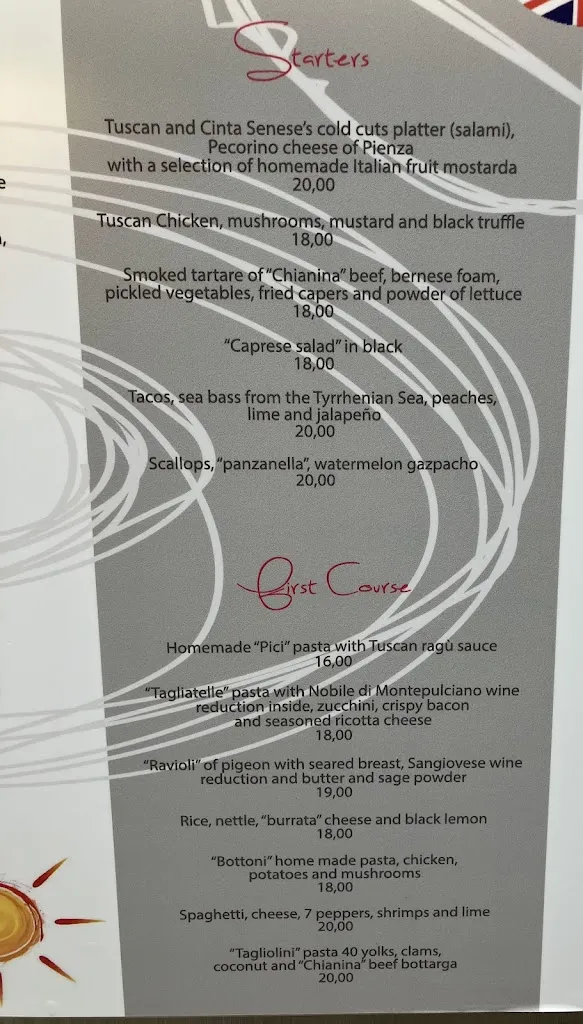 Starters
Tuscan and Cinta Senese's cold cuts platter (salami),
Pecorino cheese of Pienza
with a selection of homemade Italian fruit mostarda
20,00
Tuscan Chicken, mushrooms, mustard and black truffle
18,00
Smoked tartare of "Chianina" beef, bernese foam,
pickled vegetables, fried capers and powder of lettuce
18,00
"Caprese salad" in black
18,00
Tacos, sea bass from the Tyrrhenian Sea, peaches,
lime and jalapeño
20,00
Scallops, "panzanella", watermelon gazpacho
20,00
First Course
Homemade "Pici" pasta with Tuscan ragù sauce
16,00
"Tagliatelle" pasta with Nobile di Montepulciano wine
reduction inside, zucchini, crispy bacon
and seasoned ricotta cheese
18,00
"Ravioli" of pigeon with seared breast, Sangiovese wine
reduction and butter and sage powder
19,00
Rice, nettle, "burrata" cheese and black lemon
18,00
"Bottoni" home made pasta, chicken,
potatoes and mushrooms
18,00
Spaghetti, cheese, 7 peppers, shrimps and lime
20,00
"Tagliolini" pasta 40 yolks, clams,
coconut and "Chianina" beef bottarga
20,00